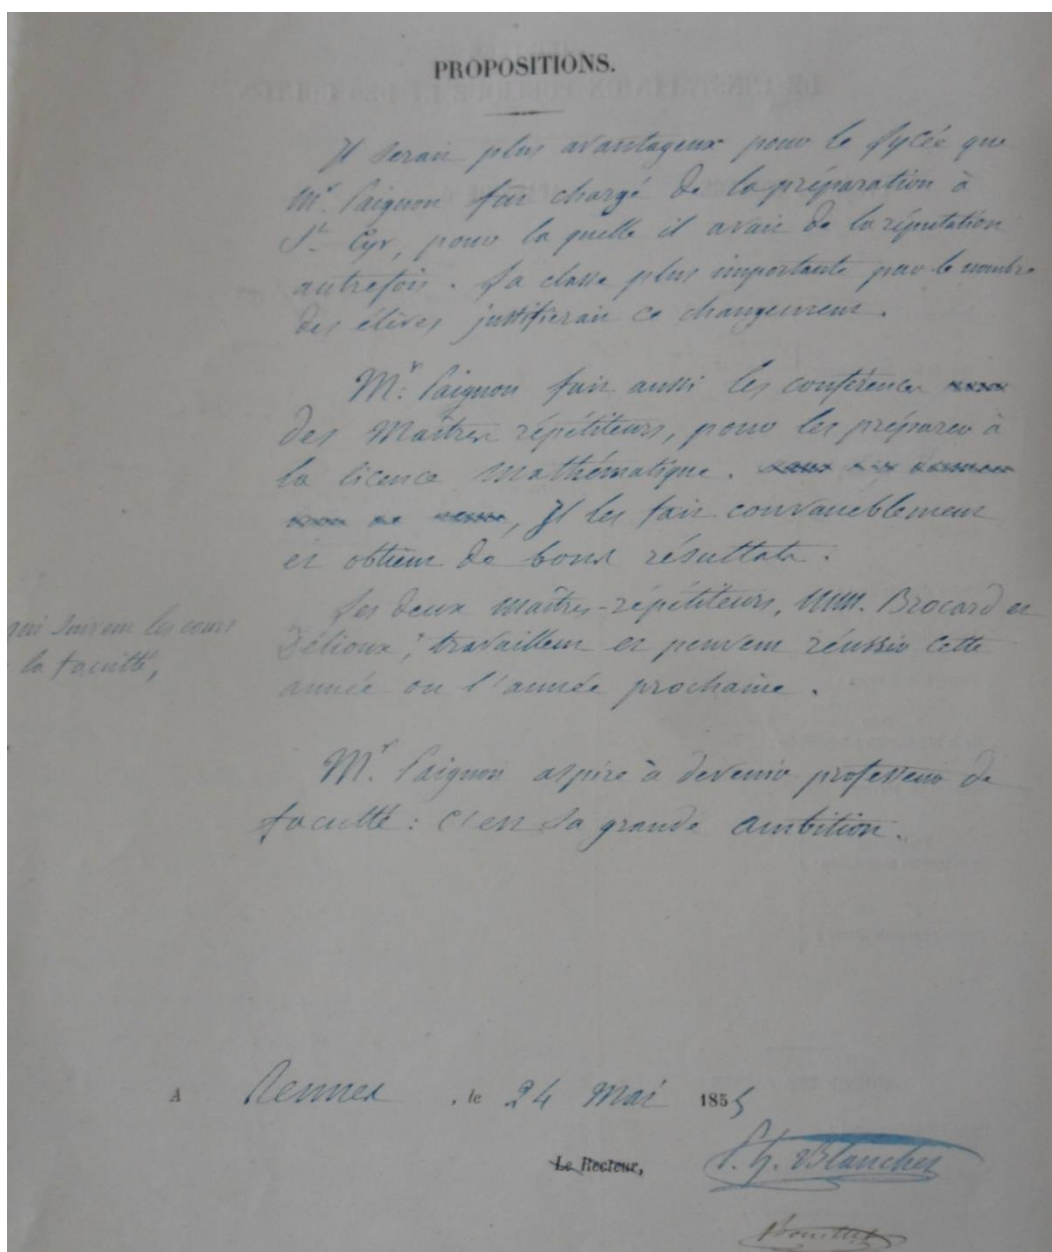 PROPOSITIONS.
Il serait plus avantageux pour le lycée que
Mr. Paignon fut chargé de la préparation à
St. Cyr, pour la quelle il avait de la réputation
autrefois. Sa classe plus importante par le nombre
des élèves justifierait ce changement.
Mr. Paignon fait aussi les conférences
des Maîtres répétiteurs, pour les préparer à
la licence mathématique.
, Il les fait convenablement
et obtient de bons résultats.
Les deux maîtres-répétiteurs, MM. Brocard et
Délioux, travaillent et peuvent réussir cette
qui suivent les cours
la faculté,
année ou l'année prochaine.
Mr. Paignon aspire à devenir professeur de
faculté : c'est sa grande ambition.
A Rennes, le 24 Mai 1855
Le Recteur,
P. H. Blanchet